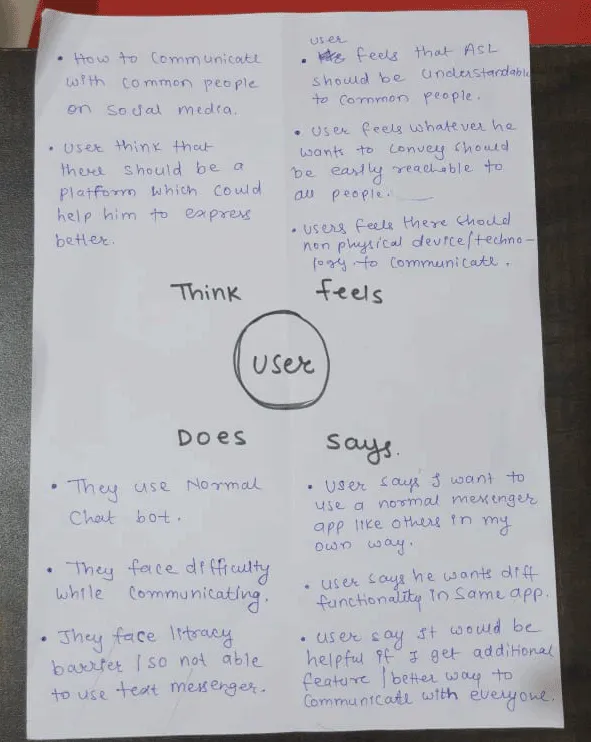 • How to communicate
with common people
on social media.
• User think that
there should be a
platform which could
help him to express
better.
user
• feels that ASL
should be understandable
to common people.
• User feels whatever he
wants to convey should
be easily reachable to
all people.
• users feels there should
non physical device/techno-
logy to communicate.
Think
feels
User
Does
says.
• They use Normal
Chat bot.
• They face difficulty
while communicating.
• They face litracy
barrier / so not able
to use text messenger.
• User says I want to
use a normal messenger
app like others in my
own way.
• user says he wants diff
functionality in same app.
• user say it would be
helpful if I get additional
feature / better way to
communicate with everyone.